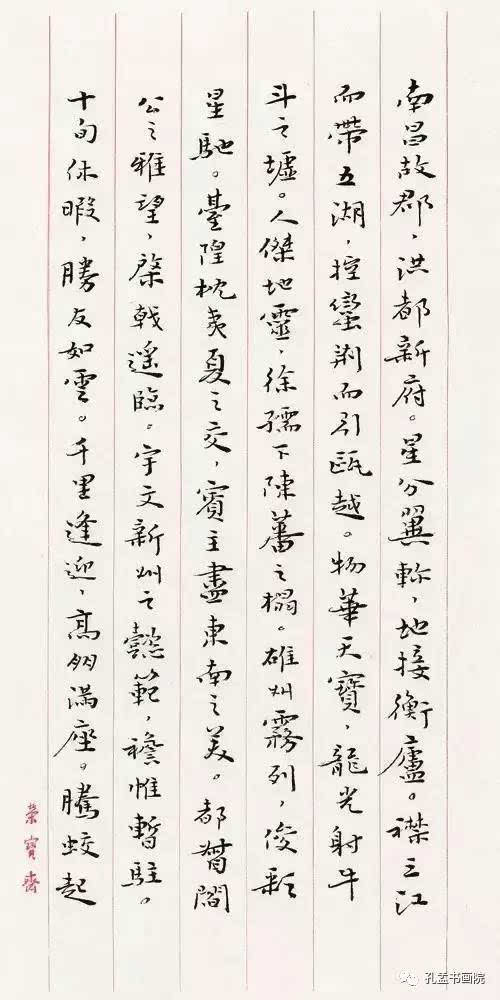 南昌故郡，洪都新府。星分翼軫，地接衡廬。襟三江
而帶五湖，控蠻荆而引甌越。物華天寶，龍光射牛
斗之墟。人傑地靈，徐孺下陳蕃之榻。雄州霧列，俊彩
星馳。臺隍枕夷夏之交，賓主盡東南之美。都督閻
公之雅望，棨戟遥臨。宇文新州之懿範，襜帷暫駐。
十旬休暇，勝友如雲。千里逢迎，高朋满座。騰蛟起
榮寶齋
孔孟书画院